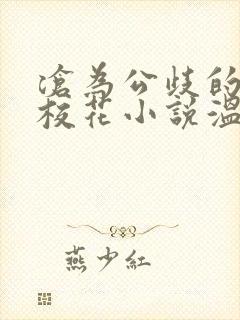 滄為公歧的
校花小說溫
燕少紅